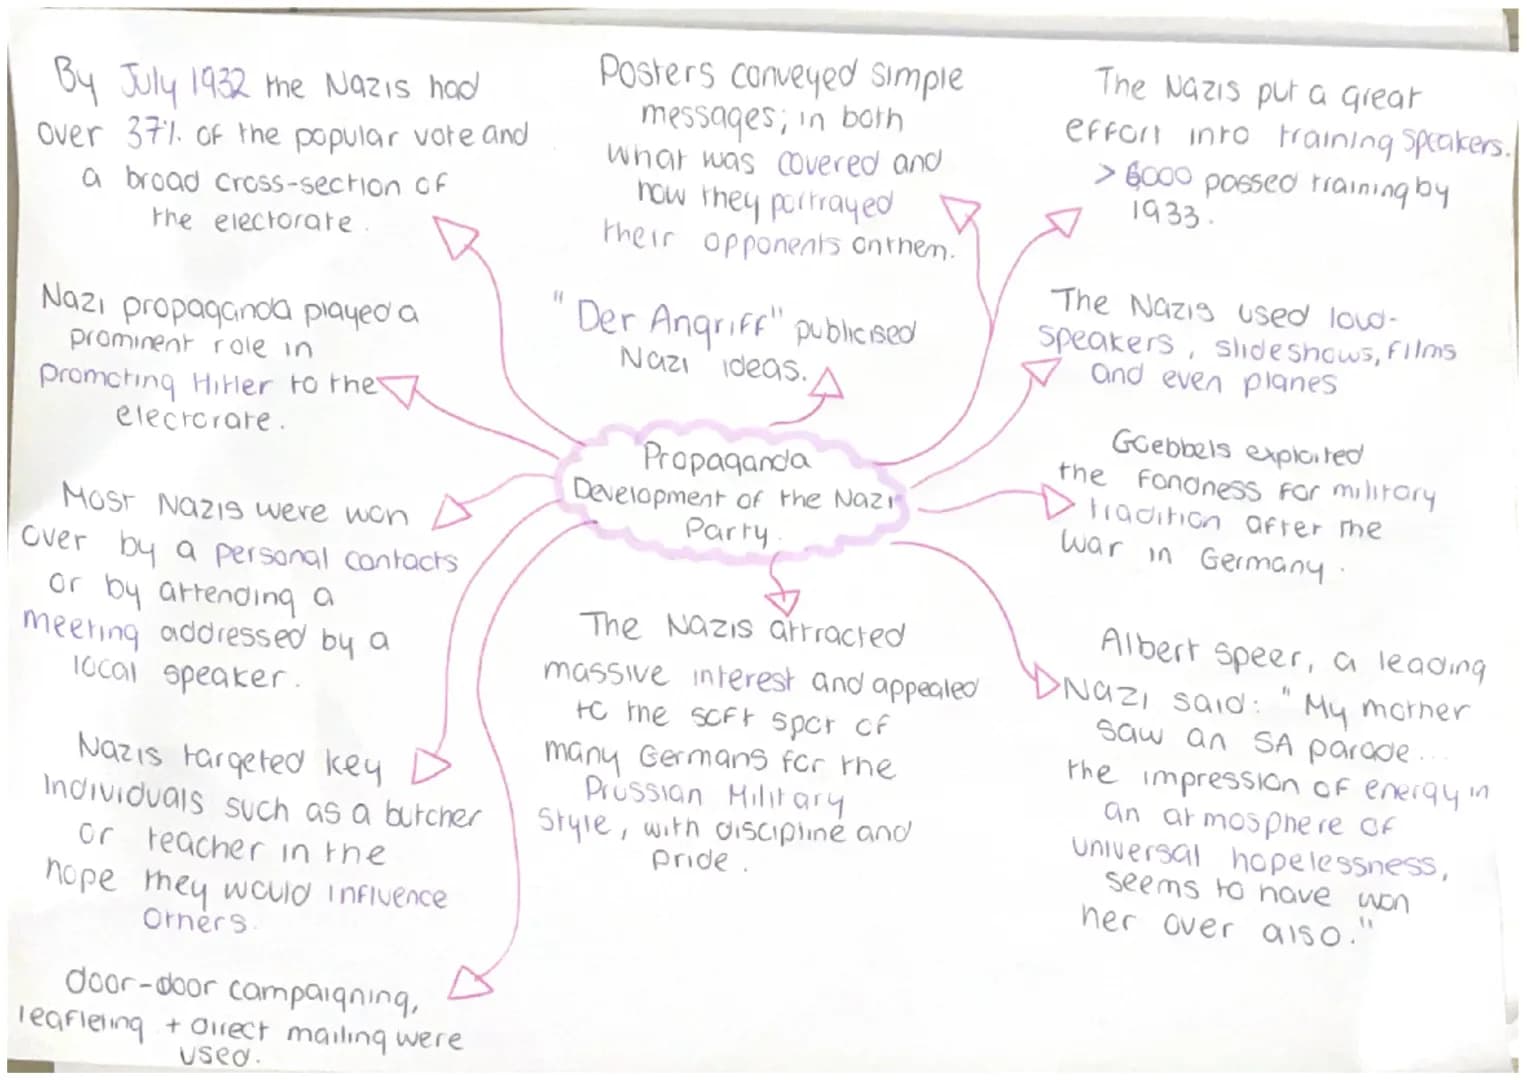 By July 1932 the Nazis had
over 37% of the popular vote and
a broad cross-section of
the electorate.
Nazi propaganda played a
prominent role in
promoting Hitler to the
electorate.
Most Nazis were won
over by a personal contacts
or by attending a
meeting addressed by a
local speaker.
Nazis targeted key
Individuals such as a butcher
or teacher in the
hope they would influence
others.
door-door campaigning,
leafleting + direct mailing were
used.
Posters conveyed simple
messages; in both
what was covered and
how they portrayed
their opponents on them.
"Der Angriff" publicised
Nazi ideas.
Propaganda
Development of the Nazi
Party.
The Nazis attracted
massive interest and appealed
to the soft spot of
many Germans for the
Prussian Military
Style, with discipline and
pride.
The Nazis put a great
effort into training speakers.
> 6000 passed training by
1933.
The Nazis used loud-
speakers, slideshows, films
and even planes
Goebbels exploited
the fondness for military
tradition after the
war in Germany.
Albert Speer, a leading
Nazi said: "My mother
saw an SA parade...
the impression of energy in
an atmosphere of
universal hopelessness,
seems to have won
her over also."